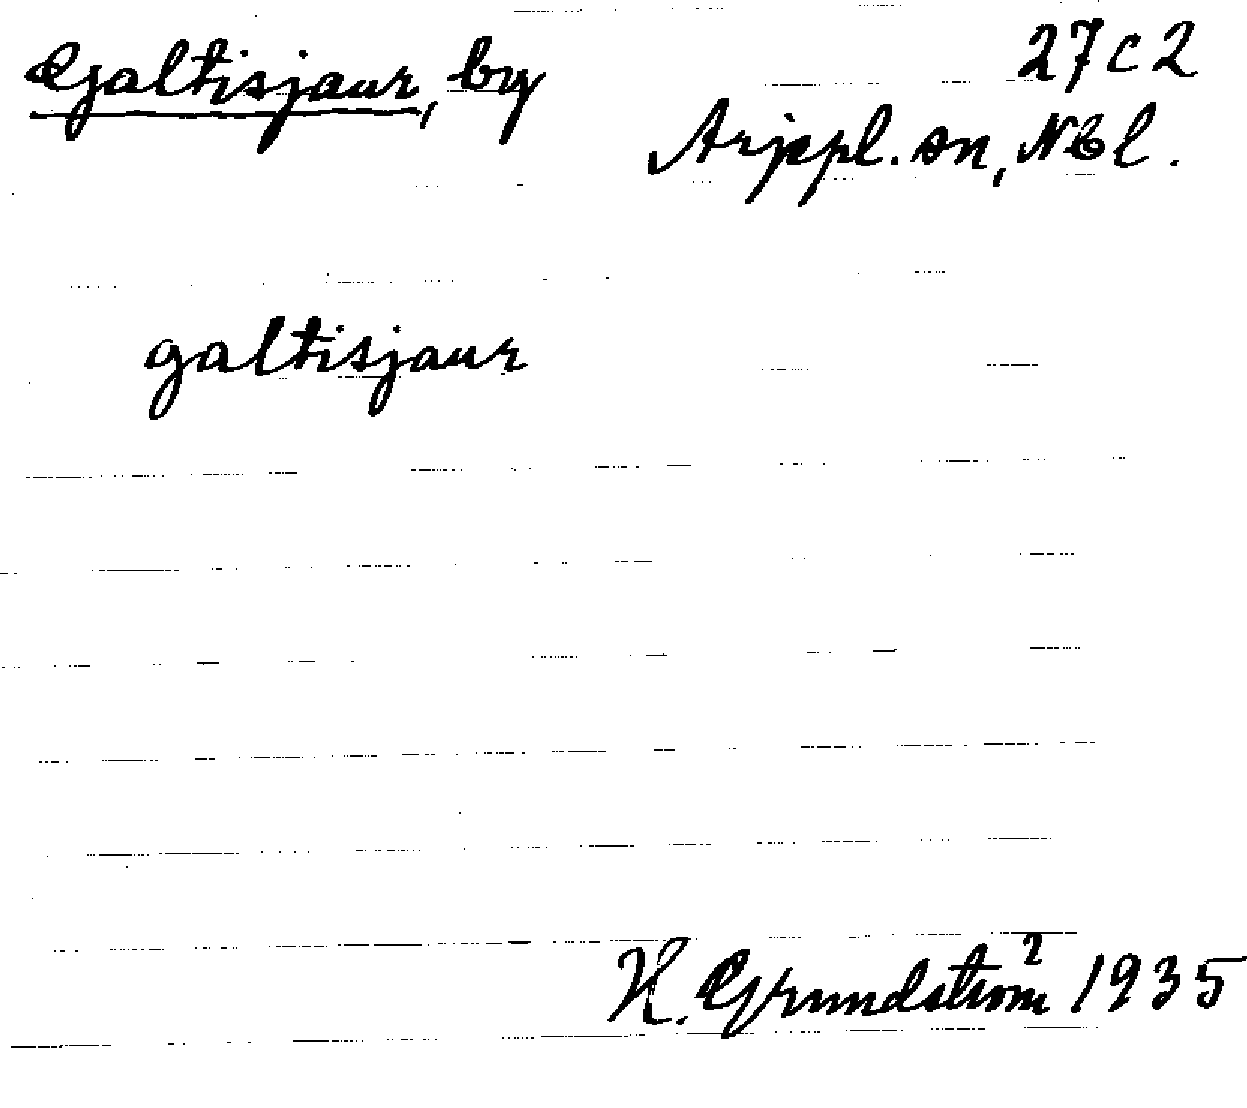 Galtisjaur, by 27 c 2
Arjepl. sn, Nbl.
galtisjaur
H. Grundström 1935